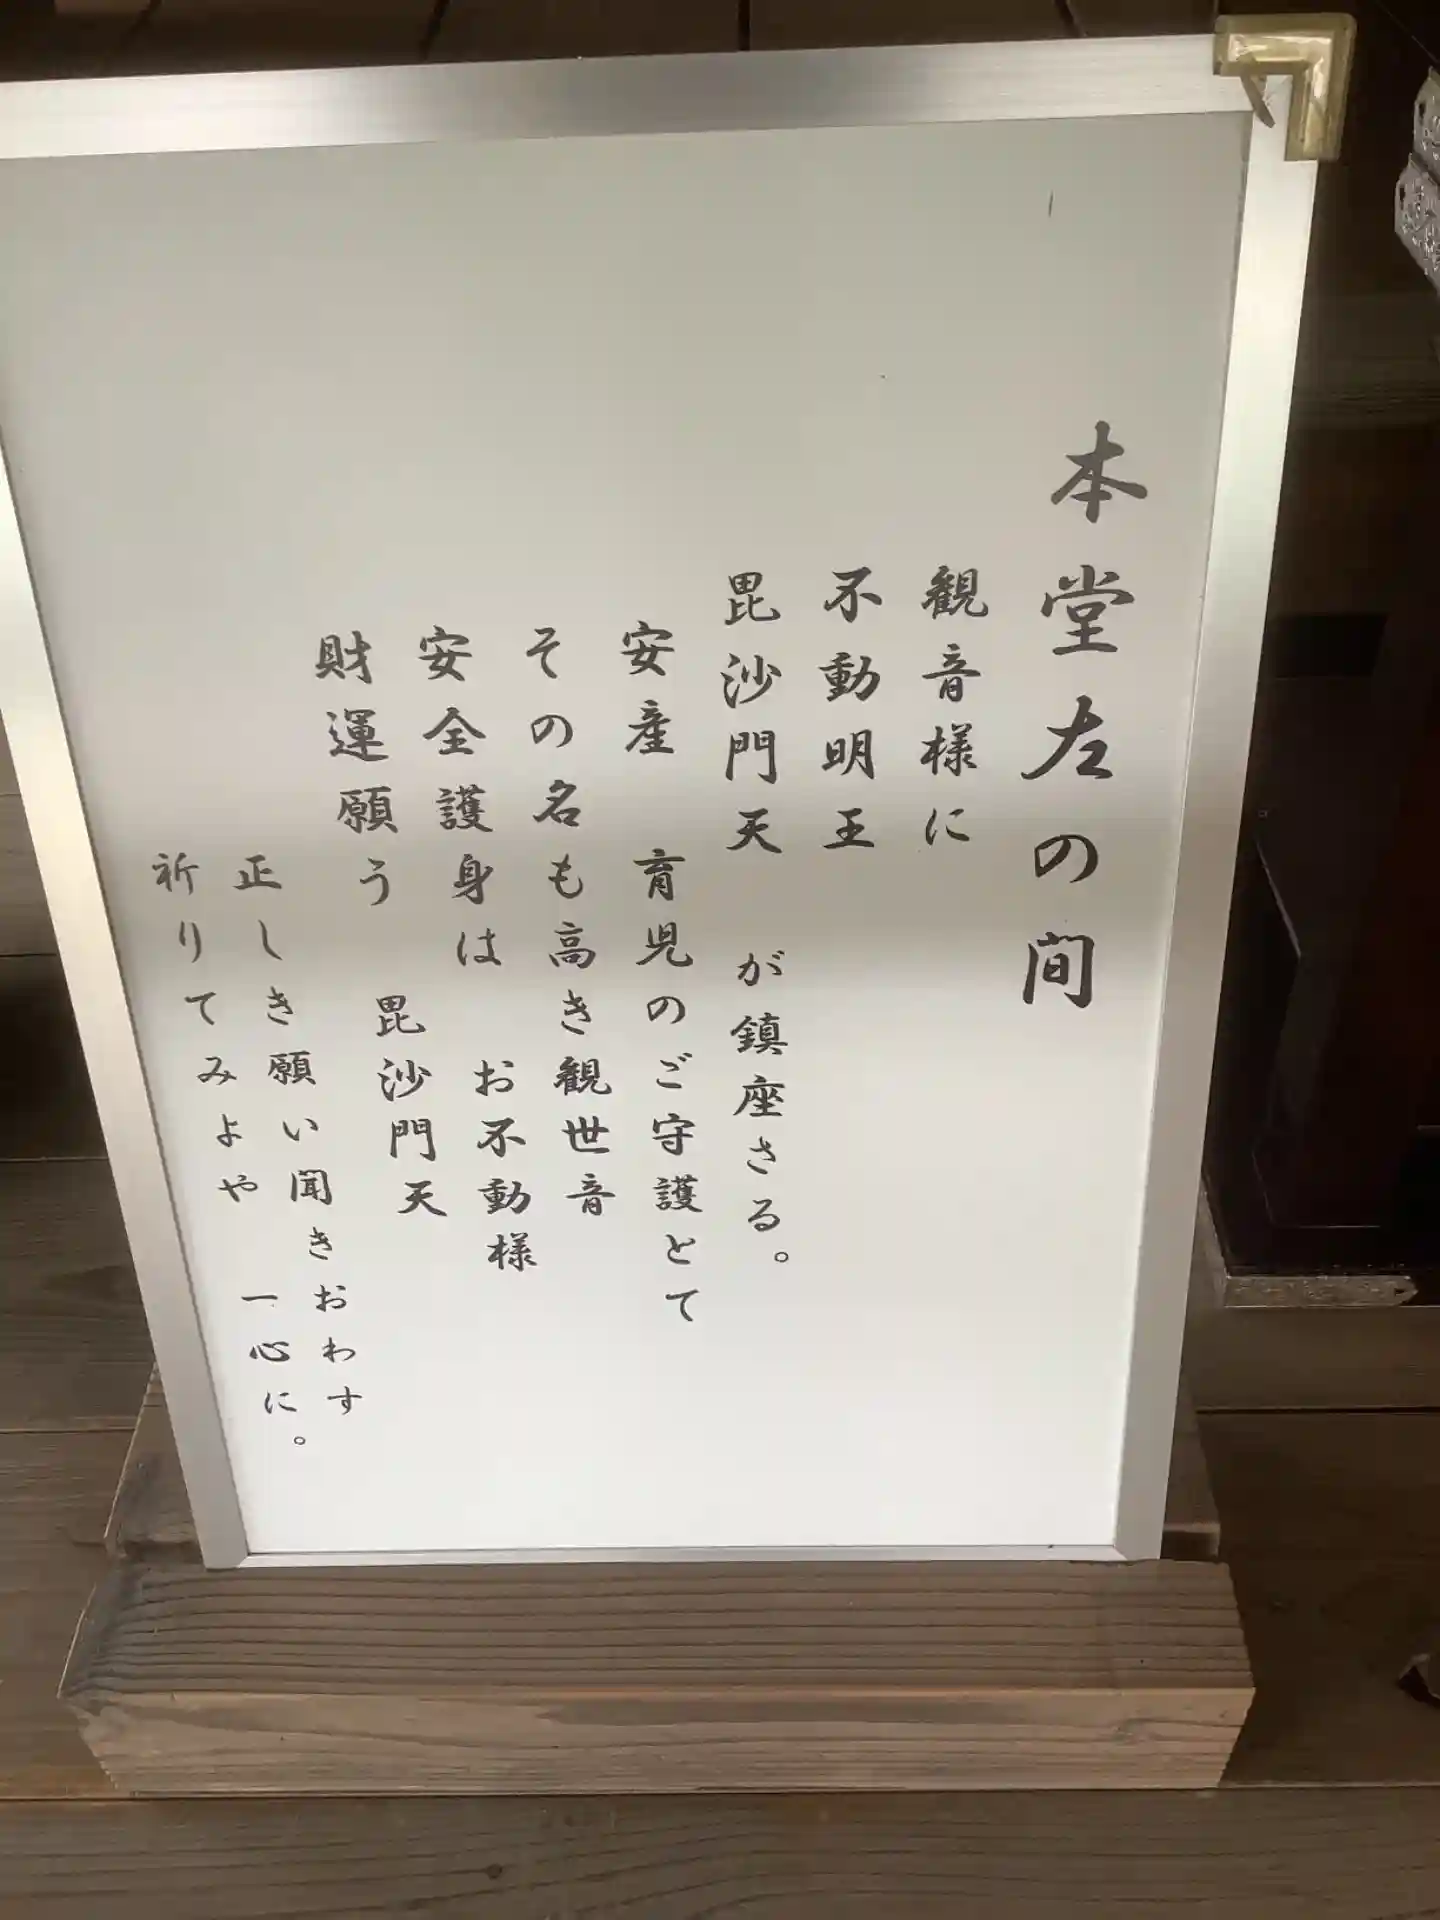 本堂左の間
観音様に
不動明王
毘沙門天　が鎮座さる。
安産　育児のご守護とて
その名も高き観世音
安全護身は　お不動様
財運願う　毘沙門天
正しき願い聞きおわす
祈りてみよや　一心に。